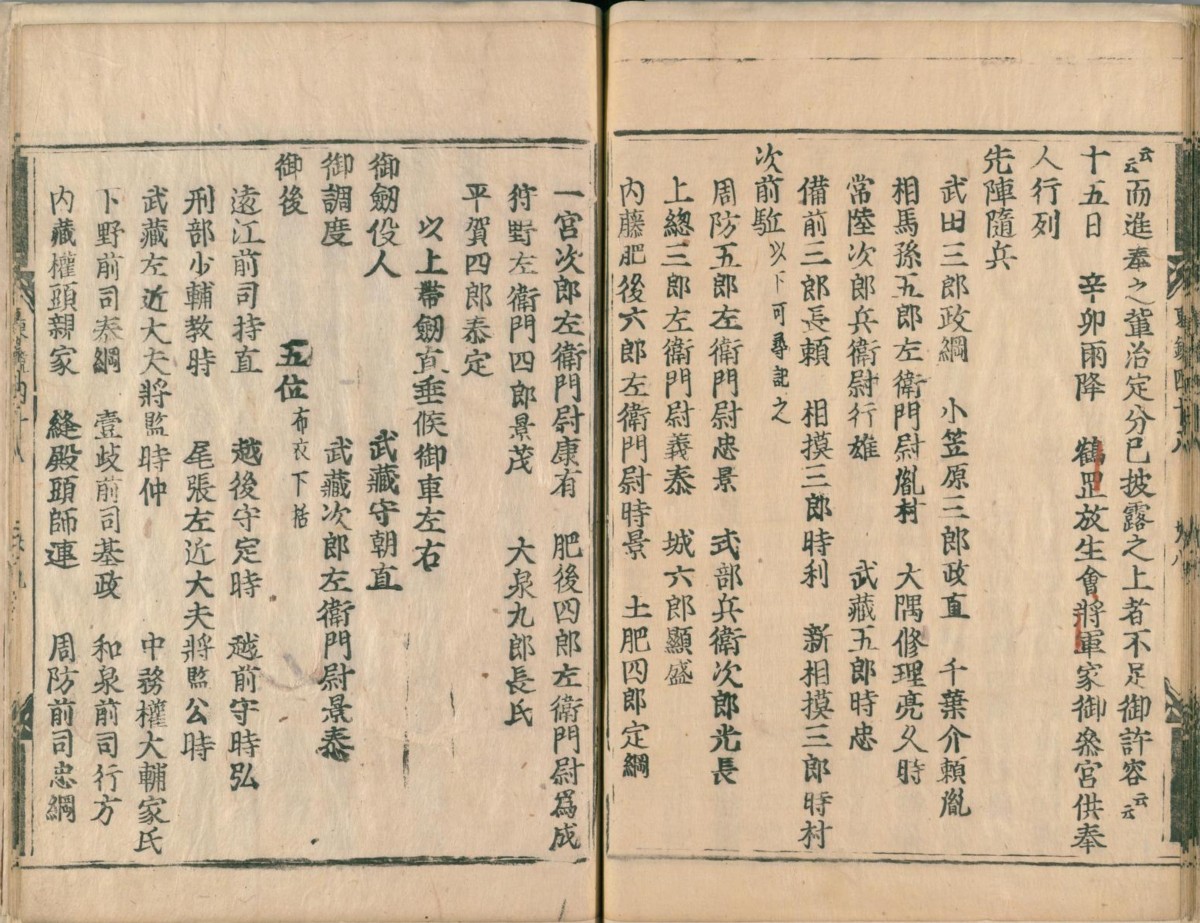 云云而進奉之輩治定分已披露之上者不足御許容云云
十五日 辛卯雨降 鶴罡放生會將軍家御叅宮供奉
人行列
先陣隨兵
武田三郎政綱 小笠原三郎政直 千葉介賴胤
相馬孫五郎左衛門尉胤村 大隅修理亮久時
常陸次郎兵衛尉行雄 武藏五郎時忠
備前三郎長賴 相摸三郎時利 新相摸三郎時村
次前駈以下可尋記之
周防五郎左衛門尉忠景 式部兵衛次郎光長
上總三郎左衛門尉義泰 城六郎顯盛
內藤肥後六郎左衛門尉時景 土肥四郎定綱
一宮次郎左衛門尉康有 肥後四郎左衛門尉爲成
狩野左衛門四郎景茂 大泉九郎長氏
平賀四郎泰定
以上帶劔直垂候御車左右
御劔役人 武藏守朝直
御調度 武藏次郎左衛門尉景泰
御後 五位布衣下括
遠江前司持直 越後守定時 越前守時弘
刑部少輔教時 尾張左近大夫將監公時
武藏左近大夫將監時仲 中務權大輔家氏
下野前司泰綱 壹歧前司基政 和泉前司行方
內藏權頭親家 縫殿頭師連 周防前司忠綱